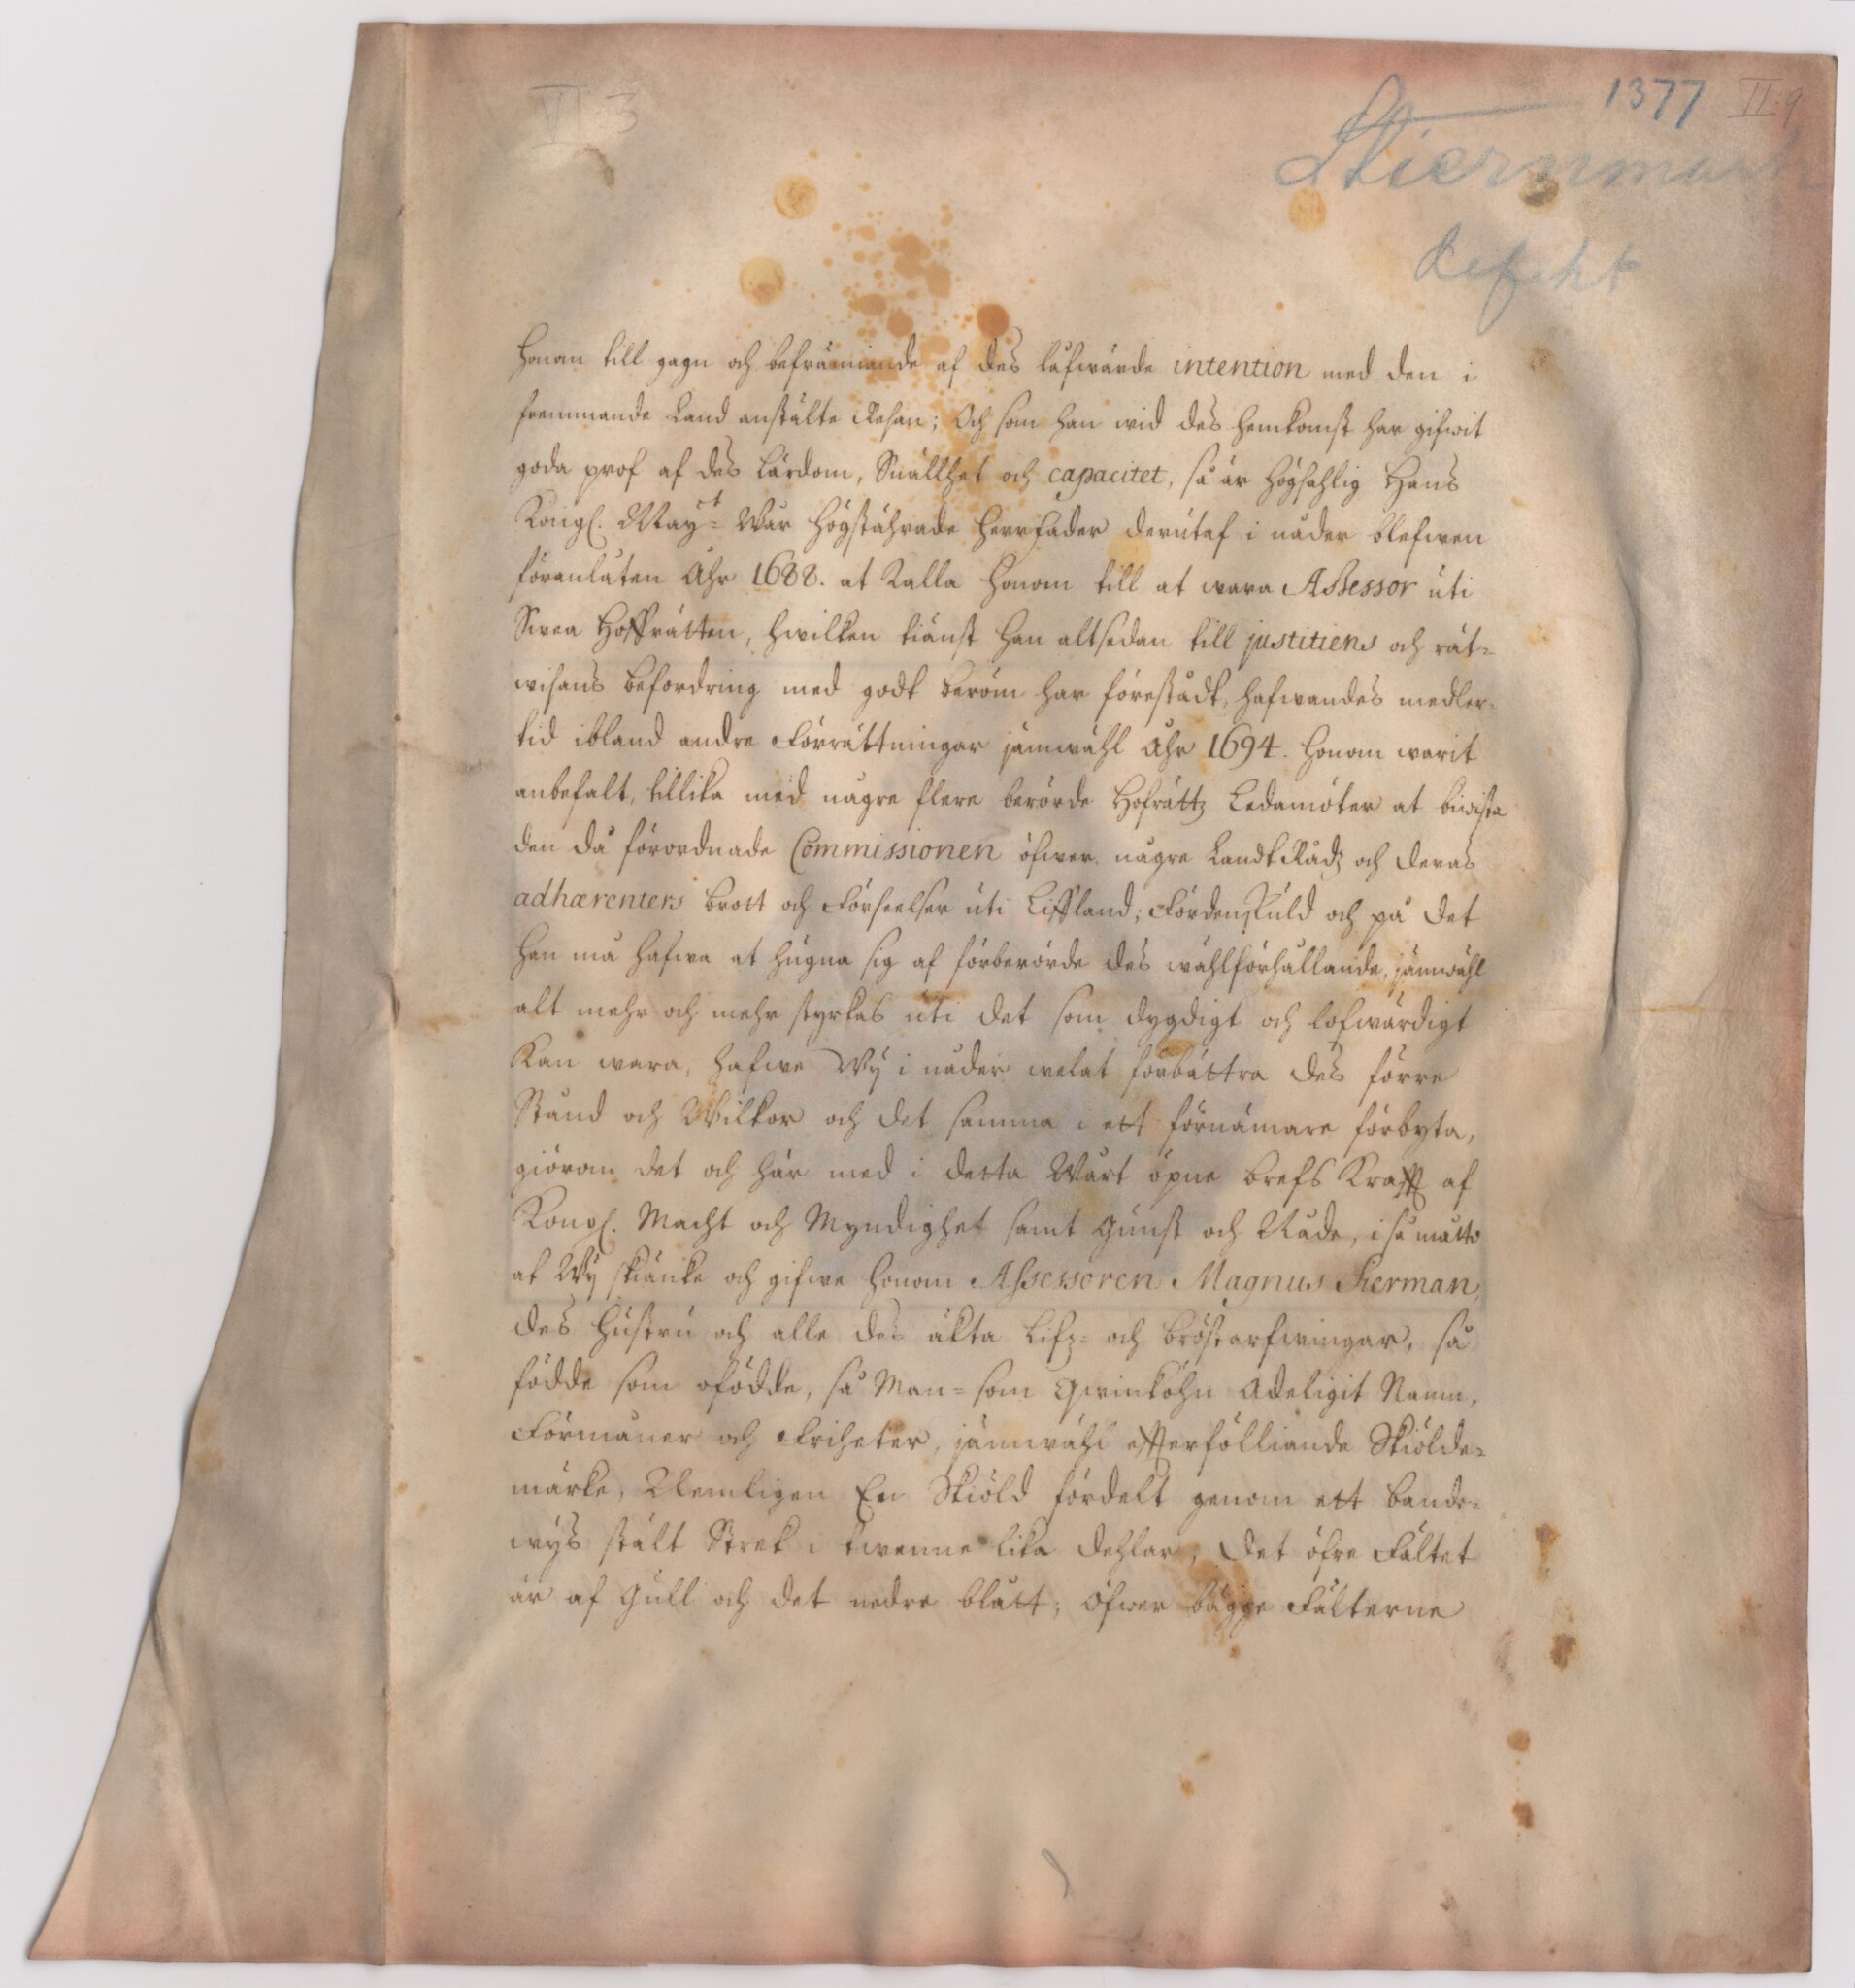 VI 3
1377 II.9
Stiernmarck
defekt
honom till gagn och befrämiande af des låfwärde intention med den i
fremmande Land anstälte Resan; Och som han wid des hemkomst har gifwit
goda prof af des Lärdom, Snällhet och capacitet, så är Högsahlig Hans
Kongl. May:t Wår Högstährade Herr Fader derutaf i nåder blefwen
föranlåten Åhr 1688. at kalla honom till at wara Assessor uti
Swea Hoffrätten, hwilken tiänst han altsedan till justitiens och rät=
wisans befordring med godt beröm har förestådt, hafwandes medler=
tid ibland andre Förrättningar jämwähl Åhr 1694. honom warit
anbefalt, tillika med någre flere berörde Hofrättz Ledamöter at biwista
den då förordnade Commissionen öfwer någre LandtRådz och deras
adhærenters brott och Förseelser uti Liffland; Fördenskuld och på det
han må hafwa at hugna sig af förberörde des wählförhållande, jämwähl
alt mehr och mehr styrkas uti det som dygdigt och lofwärdigt
kan wara, hafwe Wij i nåder welat förbättra des förre
Stånd och Wilkor och det samma i ett förnämare förbyta,
giörom det och här med i detta Wårt öpne brefs Krafft af
Kongl. Macht och Myndighet samt Gunst och Nåde, i så måtto
at Wij skiänke och gifwe honom Assessoren Magnus Stierman,
des hustru och alle des äkta Lifz= och bröstarfwingar, så
födde som ofödde, så Man= som Qwinköhn Adeligit Namn,
Förmåner och Friheter, jämwähl effterfölliande Skiölde=
märke, Nemligen En Skiöld fördelt genom ett bande=
wijs stält Strek i twenne lika dehlar, det öfre Fältet
är af Gull och det nedre blått; öfwer bägge Fälterne